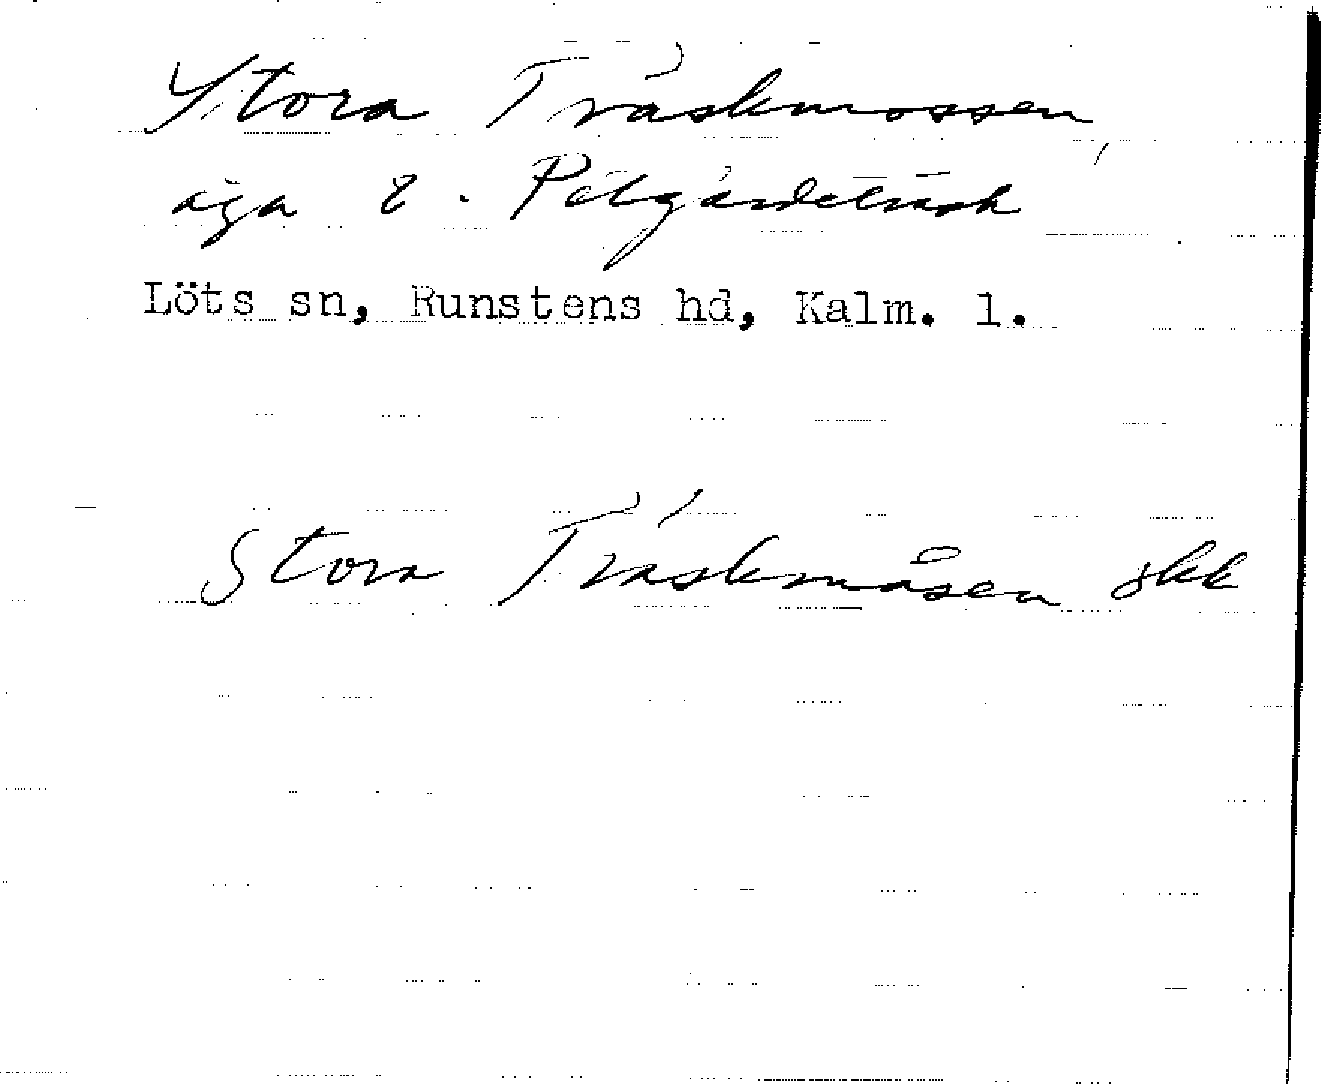 Stora Träskmossen,
äga i Pålgårdeträsk
Löts sn, Runstens hd, Kalm. l.
Stora Träskmåsen